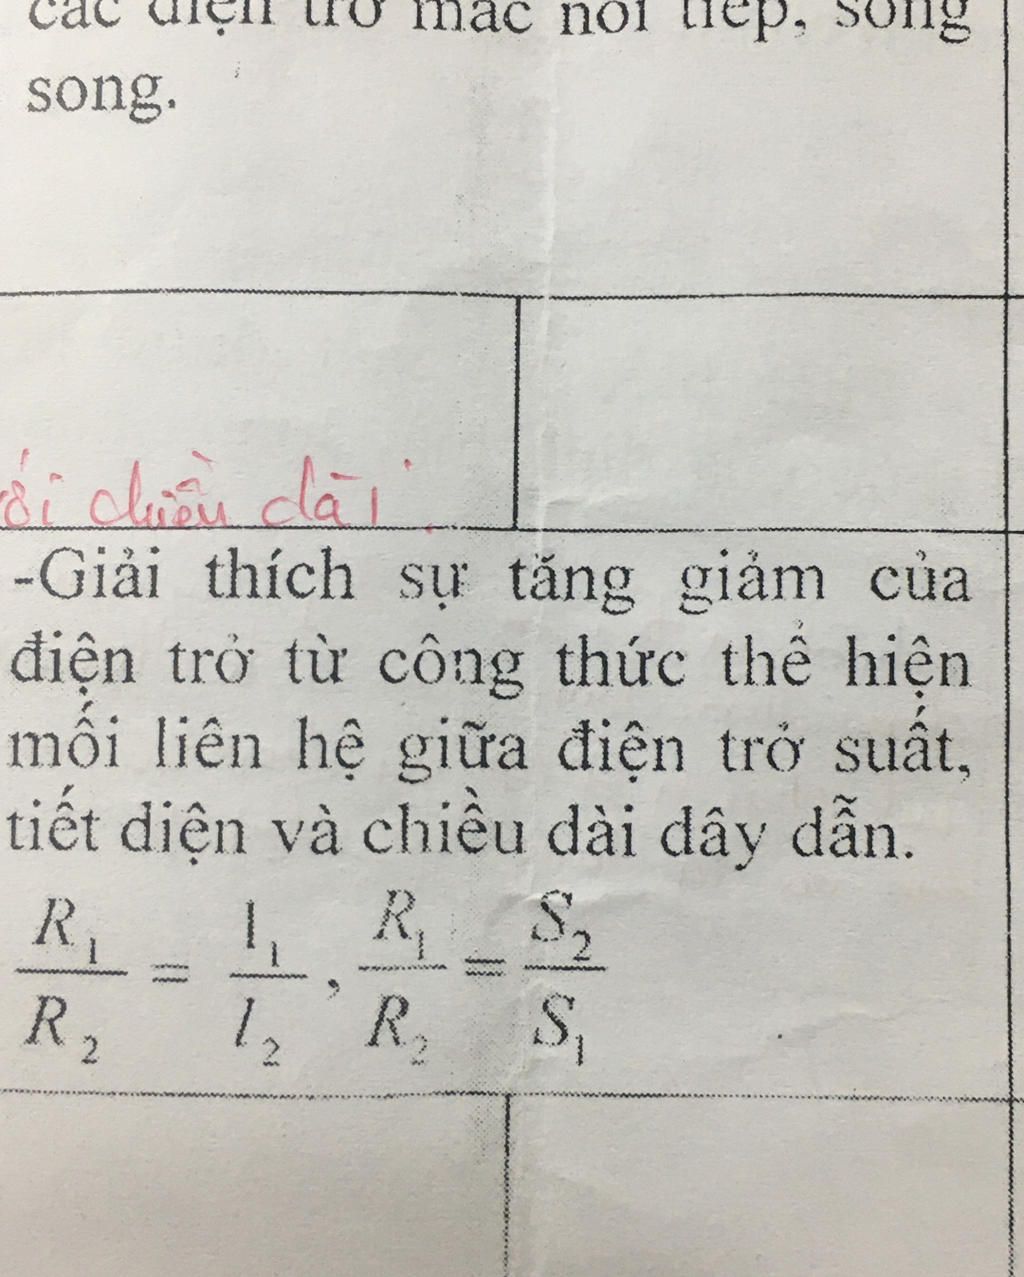 các điện trở mắc nối tiếp, song
song.
ới chiều dài.
-Giải thích sự tăng giảm của
điện trở từ công thức thể hiện
mối liên hệ giữa điện trở suất,
tiết diện và chiều dài dây dẫn.
R₁/R₂ = l₁/l₂, R₁/R₂ = S₂/S₁